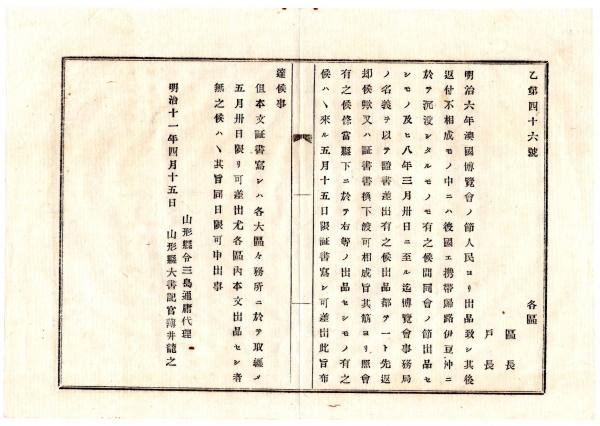 乙第四十六號
各區
區長
戸長
明治六年澳國博覽會ノ節人民ヨリ出品致シ其後
返付不相成モノ中ニハ彼國ヱ携帶歸路伊豆沖ニ
於テ沉沒シタルモノモ有之候間同會ノ節出品セ
シモノ及ヒ八年三月卅日ニ至ル迄博覽會事務局
ノ名義ヲ以テ證書差出有之候出品部テ一ト先返
却候歟又ハ証書書換下渡可相成旨其筋ヨリ照會
有之候條當縣下ニ於テ右等ノ出品セシモノ有之
候ハヽ來ル五月十五日限証書寫シ可差出此旨布
達候事
但本文証書寫シハ各大區々務所ニ於テ取纒メ
五月卅日限リ可差出尤各區內本文出品セシ者
無之候ハヽ其旨同日限可申出事
明治十一年四月十五日
山形縣令三島通庸代理
山形縣大書記官薄井龍之